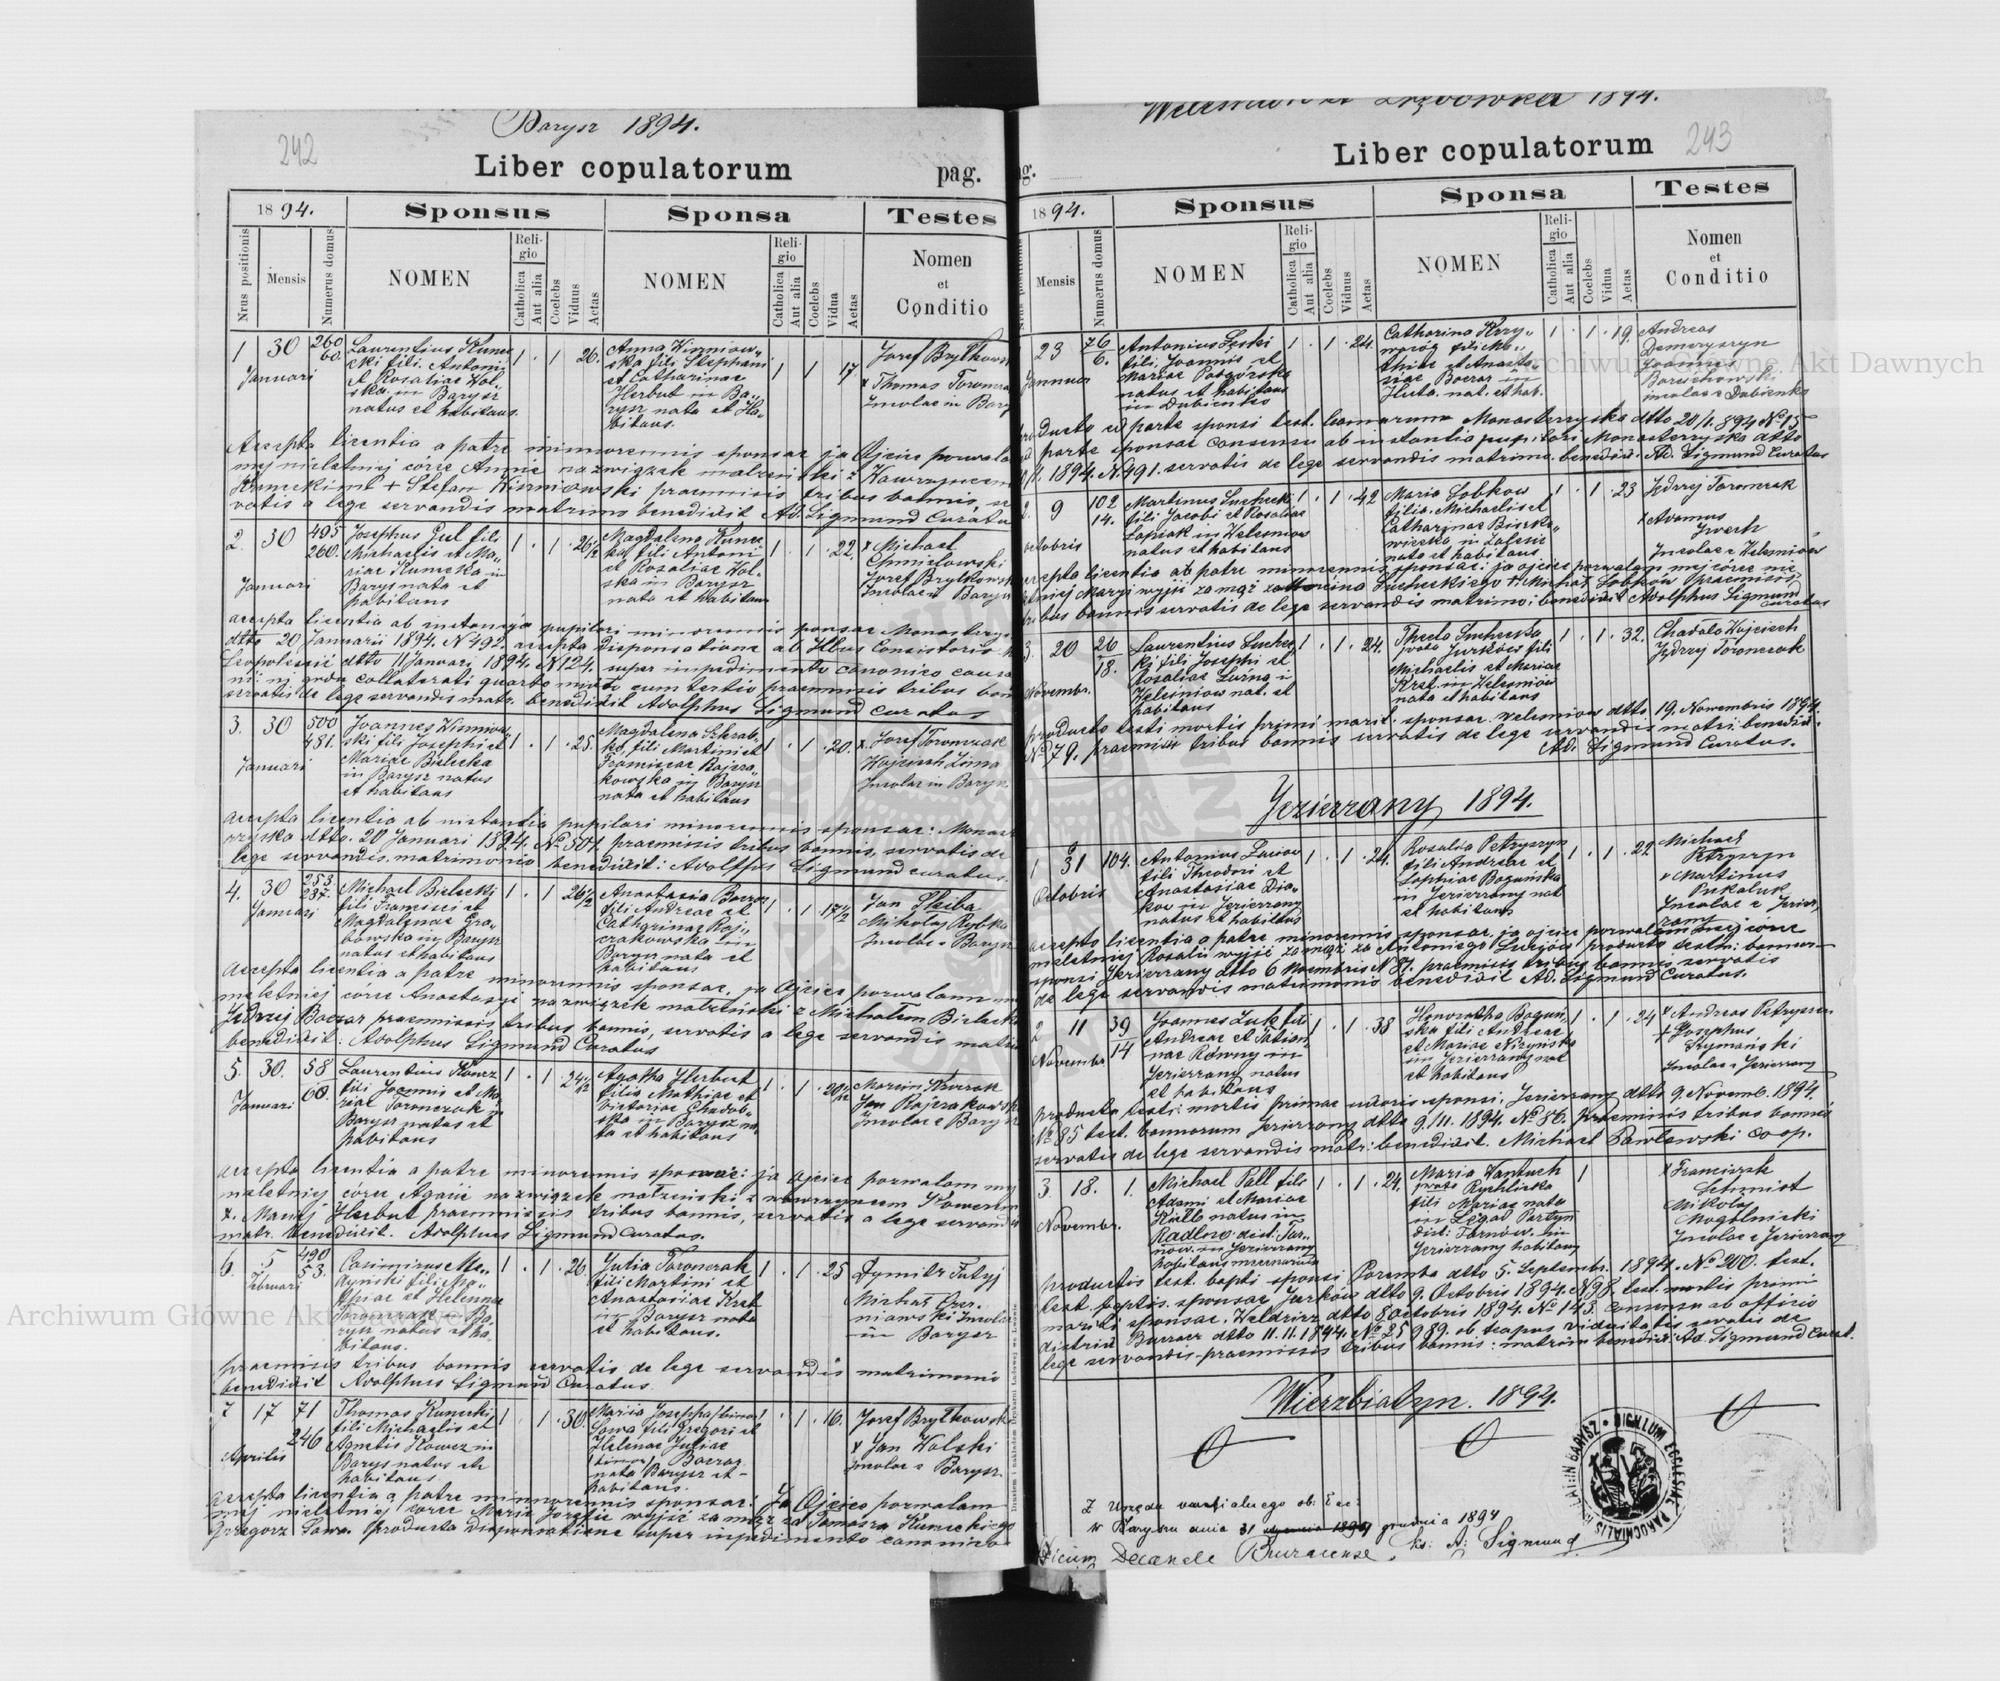 Barysz 1894.
242
Liber copulatorum
pag.
1894.
Sponsus
Sponsa
Testes
Nrus positionis
Mensis
Numerus domus
NOMEN
Religio
Catholica
Aut alia
Coelebs
Viduus
Aetas
NOMEN
Religio
Catholica
Aut alia
Coelebs
Vidua
Aetas
Nomen
et
Conditio
1 30 260 60.
Januari
Laurentius Kunec
cki fili. Antoni
et Rosaliae Wol-
ska in Barysz
natus et habitans.
1 . 1 26.
Anna Wiszniow-
ska fili Stephani
et Catharinae
Herbut in Ba-
rysz nata et Ha-
bitans.
1 1 17
Josef Brytkows
x Thomas Toroncza
Incolae in Bary
Accepta licentia a patre minorennis sponsae ja Ojciec pozwalam
mej nieletniej córce Annie na związek małżeński z Wawrzyncem
Kuneckim + Stefan Wiszniowski praemissis tribus bannis, ser
vatis a lege servandis matrimo benedixit Ad. Sigmund Curatu
2. 30 495 260.
Januari
Josephus Gul fili
Michaelis et Ma-
riae Kunecka in
Barysz nata et
habitans
1 . 1 . 26½
Magdalena Kunec
ka fili Antoni
et Rosaliae Wol-
ska in Barysz
nata et habitans
1 . 1 . 22.
x Michael
Chmielowski
Josef Brytkowsk
Incolae Barysz
accepta licentia ab instantia pupilari minorennis sponsae Monasterzy
dtto 20 Januarii 1894. N 492. accepta dispensatione ab Illus Consistorio
Leopoliensi dtto 11 Januari 1894. N 124. super impedimento canonico causa
servatis de lege servandis matr. benedixit Adolphus Sigmund curatus
3. 30 500 481.
Januari
Joannes Wisniow-
ski fili Josephi et
Mariae Bielecka
in Barysz natus
et habitans
1 . 1 . 25.
Magdalena Skrab-
ka fili Martini et
Franciscae Rajcza
kowska in Barysz
nata et habitans
1 . 1 . 20.
x. Josef Toronczak
Wojciech Lima
Incolae in Barysz
accepta licentia ab instantia pupilari minorennis sponsae: Monast
rzyska dtto. 20 Januari 1894. No 501. praemissis tribus bannis, servatis de
lege servandis matrimonio benedixit: Adolphus Sigmund curatus.
4. 30 253 237.
Januari
Michael Bielecki
fili Francisci et
Magdalenae Gra-
bowska in Barysz
natus et habitans
1 . 1 26½
Anastasia Boczar
fili Andreae et
Catharinae Raj-
czakowska in
Barysz nata et
habitans
1 . 1 . 17½
Jan Skiba
Mikołaj Rybka
Incolae Barysz
Accepta licentia a patre minorennis sponsae. ja Ojciec pozwalam m
nieletniej córce Anastazyi na związek małżeński z Michałem Bieleck
Jędrzej Boczar praemissis tribus bannis, servatis a lege servandis matri
benedixit: Adolphus Sigmund Curatus
5. 30. 58 68.
Januari
Laurentius Kowcz
fili Joannis et Ma-
riae Toronczak in
Barysz natus et
habitans
1 . 1 . 24½
Agatha Herbut
filia Mathiae et
Victoriae Chadol-
ska in Barysz na-
ta et habitans
1 . 1 .
Marcin Kurzak
Jan Rajczakowsk
Incolae Barysz
accepta licentia a patre minorennis sponsae: ja ojciec pozwalam my
nieletniej córce Agacie na związek małżeński z Wawrzyncem Kowczem
x. Maciej Herbut praemissis tribus bannis, servatis a lege servandis
matr. benedixit. Adolphus Sigmund Curatus.
6. 5 490 53.
Februari
Casimirus Me-
dyński fili Ma-
thiae et Helenae
Toronczak in Ba-
rysz natus et ha-
bitans.
1 . 1 . 26.
Julia Toronczak
fili Martini et
Anastasiae Kret
in Barysz nata
et habitans.
1 . 1 . 25
Dymitr Futyj
Michał Czer-
niawski Incolae
in Barysz
praemissis tribus bannis servatis de lege servandis matrimonio
benedixit Adolphus Sigmund Curatus.
7 17 71 246
Aprilis
Thomas Kunecki
fili Michaelis et
Agnetis Kowcz in
Barysz natus et
habitans.
1 . 1 . 30.
Maria Josepha (binom)
Sowa fili Gregori et
Helenae Juliae
(binom) Boczar
nata Barysz et
habitans.
. 1 . 16.
Josef Brytkowski
x Jan Wolski
Incolae Barysz.
accepta licentia a patre minorennis sponsae: Ja Ojciec pozwalam
mej nieletniej córce Maria Józefie wyjść zamąż za Tomasza Kuneckiego
Grzegorz Sowa. Producta dispensatione super impedimento canonico
1894.
243
Liber copulatorum
1894.
Sponsus
Sponsa
Testes
Mensis
Numerus domus
NOMEN
Religio
Catholica
Aut alia
Coelebs
Viduus
Aetas
NOMEN
Religio
Catholica
Aut alia
Coelebs
Vidua
Aetas
Nomen
et
Conditio
23 76 6.
Januari
Antonius Łęski
fili Joannis et
Mariae Podgórska
natus et habitans
in Dubienko
1 . 1 . 24.
Catharina Krzy-
woróg
et Anasta-
siae Boczar in
Huta. nat. et hab.
1 . 1 . 19.
Andreas
Joannes
incolae Dubienko
producto ex parte sponsi test. bannorum Monasterzyska dtto 20/1. 894 No 15
parte sponsae consensu ab instantia pupilari Monasterzyska dtto
1. 1894. N. 491. servatis de lege servandis matrimo. benedixit Ad. Sigmund Curatus
2. 9 102 14.
Octobris
Martinus Suchecki
fili Jacobi et Rosaliae
Łapiak in Welesniow
natus et habitans
1 . 1 . 42
Maria Sobkow
filia Michaelis et
Catharinae Biszke-
wiczka in Zalesie
nata et habitans
1 . 1 . 23
Jędrzej Toronczak
x Adamus
Incolae Welesniow
accepta licentia ab patre minorennis sponsae: ja ojciec pozwalam mej córce nie
letniej Maryi wyjść zamąż za Marcina Sucheckiego + Michał Sobkow praemissis
tribus bannis servatis de lege servandis matrimo: benedixit Adolphus Sigmund
curatus
3. 20 26 18.
Novembr.
Laurentius Suchec
ki fili Josephi et
Rosaliae Surna in
Welesniow nat. et
habitans
1 . 1 . 24.
Thecla Suchecka
Jurków fili
Michaelis et Mariae
Kret in Welesniow
nata et habitans
1 . 1 . 32.
Chadala Wojciech
Jędrzej Toronczak
producto testi mortis primi marit. sponsae. Welesniow dtto 19. Novembris 1894.
No 79. praemissis tribus bannis servatis de lege servandis matri: benedix.
Ad. Sigmund Curatus.
Jezierzany 1894.
1 31 104.
Octobris
Antonius Luciow
fili Theodori et
Anastasiae Dia-
kow in Jezierzany
natus et habitans
1 . 1 . 24.
Rosalia Petryszyn
fili Andreae et
Sophiae Boguńska
in Jezierzany nat
et habitans
1 . 1 . 22
Michael
Petryszyn
x Martinus
Pukaluk
Incolae Jezier-
zany
accepta licentia a patre minorennis sponsae. ja ojciec pozwalam mej córce
nieletniej Rosalii wyjść zamąż za Antoniego Luciów producto testm: bannor
sponsi Jezierzany dtto 6 Novembris N 87. praemissis tribus bannis servatis
de lege servandis matrimonio benedixit Ad. Sigmund Curatus.
2 11 39 14
Novembr
Joannes Łuk fili
Andreae et Tatian-
nae Równy in
Jezierzany natus
et habitans
1 . 1 . 38
Honoratha Boguń-
ska fili Andreae
et Mariae Niżyńska
in Jezierzany nat
et habitans
1 . 1 . 24
x Andreas Petryszen
+ Josephus
Szymański
Incolae Jezierzany
producto testi: mortis primae uxoris sponsi. Jezierzany dtto 9. Novemb. 1894.
No 85 test. bannorum Jezierzany dtto 9/11. 1894. No 86. praemissis tribus bannis
servatis de lege servandis matr: benedixit. Michael Pawłowski coop.
3. 18. 1.
Novembr.
Michael Pall fili
Adami et Mariae
Kalb natus in
Radlna dist: Tar-
now. in Jezierzany
habitans
1 . 1 . 24.
Maria Wantuch
Rychlicka
fili Mariae nata
in Łęgad Partyn
dist: Tarnów. in
Jezierzany habitans
1
x Franciszek
Schmidt
Mikołaj
Mogilnicki
Incolae Jezierzany
productis test. bapti sponsi Poremba dtto 5. Septembr. 1894. No 200. test.
test. baptis. sponsae Jurków dtto 9. Octobris 1894. N 98. test. mortis primi
mariti sponsae. Weldzirz dtto 8 Octobris 1894. No 143. consensu ab officio
district Buczacz dtto 11.11. 1894. No 25989. ob tempus viduitatis servatis de
lege servandis-praemissis tribus bannis: matrim benedixi: Ad. Sigmund Curat.
Wierzbiatyn. 1894.
Z Urzędu parafialnego ob: łać:
w Baryszu dnia 31 stycznia 1894 grudnia 1894
ks: A: Sigmund
Decanale Buczacense.
SIGILLUM ECCLESIAE PAROCHIALIS R. LAT: IN BARYSZ
Drukiem i nakładem Drukarni Ludowej we Lwowie
Archiwum Główne Akt Dawnych
Archiwum Główne Akt Dawnych